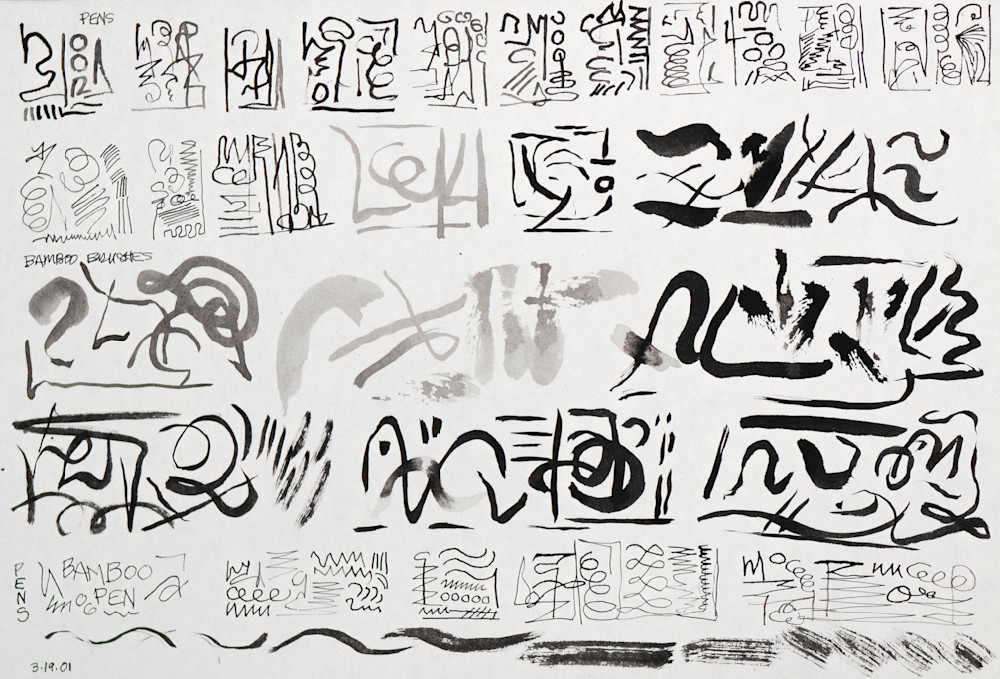 PENS
BAMBOO BRUSHES
PENS
BAMBOO
PEN
3.19.01